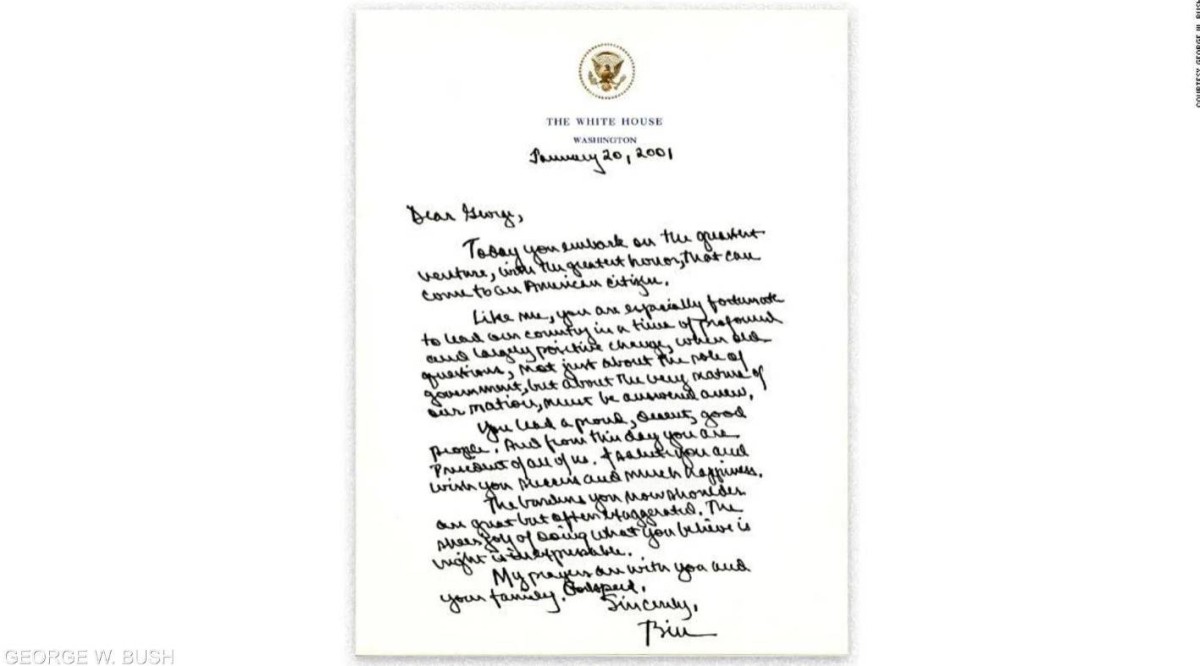 THE WHITE HOUSE
WASHINGTON
January 20, 2001
Dear George,
Today you embark on the greatest
venture, with the greatest honor, that can
come to an American citizen.
Like me, you are especially fortunate
to lead our country in a time of profound
and largely positive change, when old
questions, not just about the role of
government, but about the very nature of
our nation, must be answered anew.
You lead a proud, decent, good
people. And from this day you are
President of all of us. I salute you and
wish you success and much happiness.
The burdens you now shoulder
are great but often exaggerated. The
sheer joy of doing what you believe is
right is inexpressible.
My prayers are with you and
your family. Godspeed.
Sincerely,
Bill
GEORGE W. BUSH
COURTESY GEORGE W. BUSH